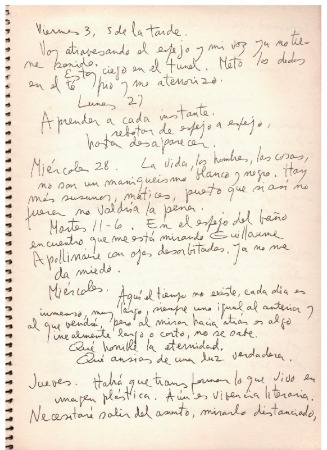 Viernes 3, 5 de la tarde.
Voy atravesando el espejo y mi voz ya no tie-
ne sonido. Estoy ciego en el tunel. Meto los dedos
en el té frío y me aterrorizo.
Lunes 27
Aprender a cada instante.
rebotar de espejo a espejo,
hasta desaparecer.
Miércoles 28. La vida, los hombres, las cosas,
no son un maniqueismo blanco y negro. Hay
más susurros, matices, puesto que si así no
fuera no valdría la pena.
Martes 11-6. En el espejo del baño
encuentro que me está mirando Guillaume
Apollinaire con ojos desorbitados. Ya no me
da miedo.
Miércoles. Aquí el tiempo no existe, cada día es
inmenso, muy largo, siempre uno igual al anterior y
al que vendrá, pero al mirar hacia atrás es algo
irrealmente largo o corto, no se sabe.
Qué horrible la eternidad.
Qué ansias de una luz verdadera.
Jueves. Habrá que transformar lo que vivo en
imagen plástica. Aún es vivencia literaria.
Necesitaré salir del asunto, mirarlo distanciado,